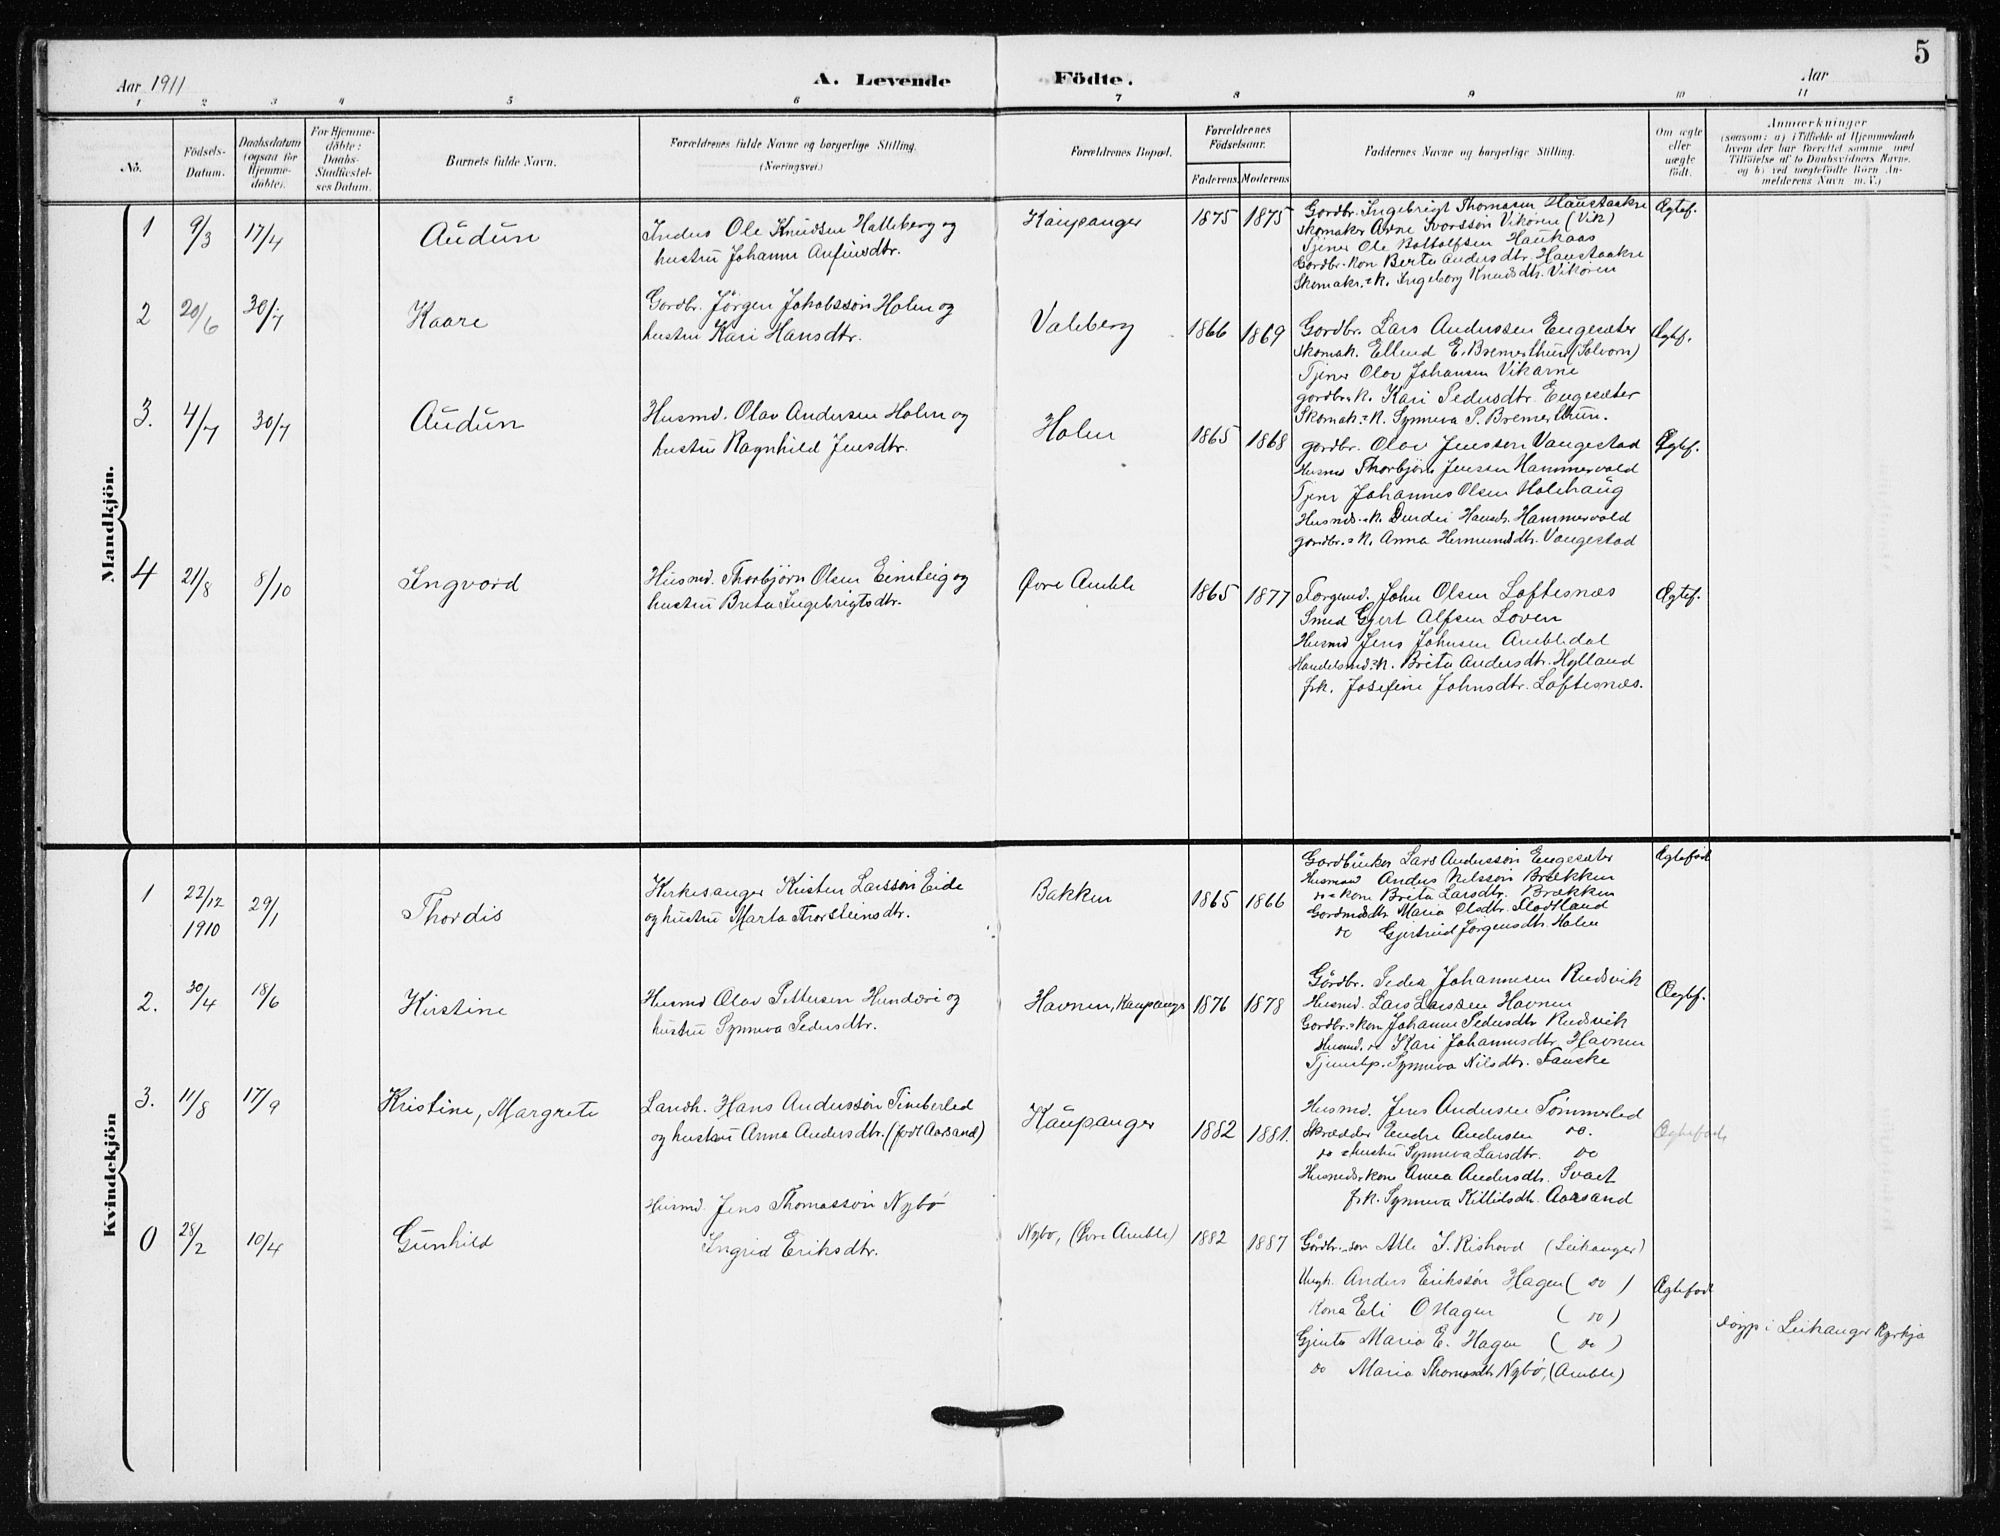 5
Aar 1911
A. Levende Födte.
Aar
1 2 3 4 5 6 7 8 9 10 11
No.
Födsels-
Datum.
Daabsdatum
(ogsaa for
Hjemme-
döbte).
For Hjemme-
döbte:
Daabs-
Stadfæstel-
ses Datum.
Barnets fulde Navn.
Forældrenes fulde Navne og borgerlige Stilling.
(Næringsvei.)
Forældrenes Bopæl.
Forældrenes
Födselsaar.
Faderens. Moderens.
Faddernes Navne og borgerlige Stilling.
Om ægte
eller
uægte
födt.
Anmærkninger
(saasom: a) i Tilfælde af Hjemmedaab
hvem der har forrettet samme, med
Tilföielse af to Daabsvidners Navne,
og b) ved uægtefödte Börn An-
melderens Navn m. V.)
Mandkjön.
1 9/3 17/4 Audun
Inders Ole Knudsen Halleberg og
hustru Johanne Anfinsdtr.
Kaupanger 1875 1875
Gordbr. Ingebrigt Thomasen Haustaakre
Skomaker Arne Ivarssön Vikören (Vik)
Tjener Ole Rottolfsen Haukaas
Gordbr.-kon Berta Andersdtr. Haustaakre
Skomakr.-k. Ingeborg Knudsdtr. Vikören
Ægtef.
2 20/6 30/7 Kaare
Gordbr. Jörgen Jakobssön Holm og
hustru Kari Hansdtr.
Valeberg 1866 1869
Gordbr. Lars Anderssen Engesæter
Skomak. Ellend E. Bremerthun (Solvorn)
Tjener Olav Johansen Vikarne
gordbr.-k. Kari Pedersdtr. Engesæter
Skomak.-k. Synneva P. Bremerthun.
Ægtef.
3. 4/7 30/7 Audun
Husmd. Olav Andersen Holm og
hustru Ragnhild Jensdtr.
Holm 1865 1868
gordbr. Olav Jenssen Vangestad
Husmd Thorbjörn Jensen Hammervold
Tjener Johannes Olsen Holehaug
Husmds.-k. Durdei Hansdr. Hammervold
gordbr.-k. Anna Hermundsdtr. Vangestad
Ægtef.
4 21/8 8/10 Ingvard
Husmd. Thorbjörn Olsen Einsteig og
hustru Brita Ingebrigtsdtr.
Øvre Amble 1865 1877
Forgmd. John Olsen Loftesnæs
Smed Gjert Alfsen Loven
Husmd Jens Johnsen Ambledal
Handelsmd.-k. Brita Andersdtr. Hylland
frk. Josefine Johnsdtr. Loftesnæs.
Ægtef.
Kvindekjön
1 22/12
1910 29/1 Thordis
Kirkesanger Kristen Larssön Eide
og hustru Marta Thorsteinsdtr.
Bakken 1865 1866
Gordbruker Lars Anderssön Engesæter
Husmand Anders Nilssön Brækken
do - kone Brita Larsdtr. Brækken
Gordmdsdtr. Maria Olsdtr. Flodtland
do Gjertrud Jörgensdtr. Holm
Ægtefød
2. 30/4 18/6 Kirstine
Husmd Olav Pettersen Hundere og
hustru Synneva Pedersdtr.
Havnen, Kaupanger 1876 1878
Gördbr. Peder Johannesen Rudsvik
Husmd. Lars Larssen Havnen
Gordbr.-kon Johanne Pedersdtr. Rudsvik
Husmd. n Kari Johannesdtr. Havnen
Tjenestp. Synneva Nilsdtr. Fauske
Ægtef.
3. 11/8 17/9 Kristine, Margrete
Landh. Hans Anderssön Timberled
og hustru Anna Andersdtr. (född Aarsand)
Kaupanger 1882 1881.
Husmd. Jens Andersen Tömmerled
Skrædder Endre Andersen do.
do - hustru Synneva Larsdtr. do
Husmds.-kone Anna Andersdtr. Svaet
frk. Synneva Kittilsdtr. Aarsand
Ægtefød.
0 28/2 10/4 Gunhild
Husmd. Jens Thomassön Nybö
Ingrid Eriksdtr.
Nybö, (Øvre Amble) 1882 1887
Gördbr.-son Atle I. Rishovd (Leikanger)
Ungk. Anders Erikssön Hagen ( do )
Kona Eli O Hagen ( do )
Gjenta Maria E. Hagen ( do )
do Maria Thomasdtr. Nybö, (Amble)
Ægtefød
döypt i Leikanger kyrkja